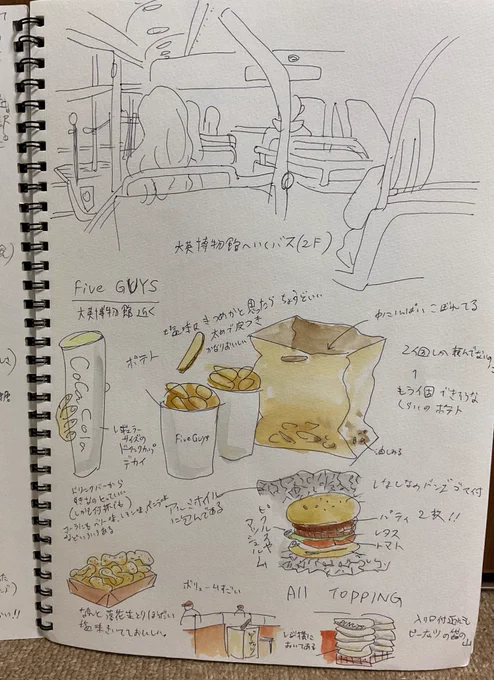 大英博物館へいくバス(2F)
Five GUYS
大英博物館近く
塩味はきつめかと思ったらちょうどいい
太めで皮つき
かなりおいしい
ポテト
中にいっぱいこぼれてる
2個しか頼んでない
↑
もう1個できそうな
くらいのポテト
CocaCola
レギュラー
サイズの
ドリンクカップ
デカイ
Five Guys
油しみる
ドリンクバーから
すきなのとっていい
(しかも何杯でも)
などいろいろある
アルミホイル
に包んである
ピクルス
マッシュルーム
しなしなのバンズゴマ付
パティ 2枚!!
レタス
トマト
All TOPPING
なんと落花生とりほうだい
塩味きいてておいしい。
ボリュームすごい
レジ横に
おいてある
入り口付近にも
ピーナッツの袋の
山